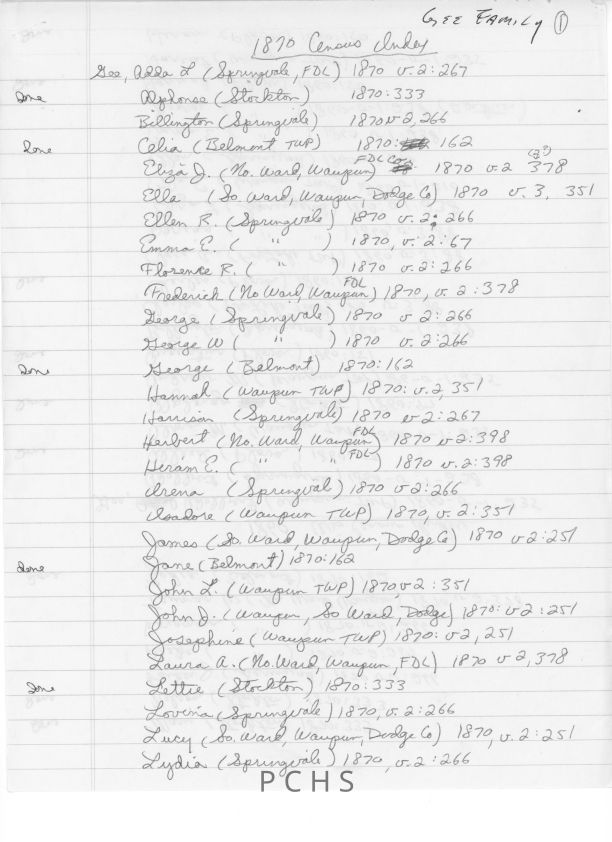 GEE FAMILY 1
1870 Census Index
Gee, Adda L (Springvale, FDL) 1870 v. 2: 267
Done Alphonse (Stockton) 1870: 333
Billington (Springvale) 1870 v 2, 266
Done Celia (Belmont TWP) 1870: 162
Eliza J. (No. Ward, Waupun) FDL Co. 1870 v. 2 378 (3?)
Ella (So. Ward, Waupun, Dodge Co) 1870 v. 3, 351
Ellen R. (Springvale) 1870 v. 2: 266
Emma E. ( " ) 1870, v. 2: 67
Florence R. ( " ) 1870 v. 2: 266
Frederick (No Ward, Waupun FDL) 1870, v. 2: 378
George (Springvale) 1870 v 2: 266
George W ( " ) 1870 v. 2: 266
Done George (Belmont) 1870: 162
Hannah (Waupun TWP) 1870: v. 2, 351
Harrison (Springvale) 1870 v 2: 267
Herbert (No. Ward, Waupun FDL) 1870 v 2: 398
Hiram E. ( " " FDL) 1870 v. 2: 398
Irena (Springval) 1870 v 2: 266
Isadore (Waupun TWP) 1870, v 2: 351
James (So. Ward, Waupun, Dodge Co) 1870 v 2: 251
Done Jane (Belmont) 1870: 162
John L. (Waupun TWP) 1870 v 2: 351
John J. (Waupun, So Ward, Dodge) 1870: v 2: 251
Josephine (Waupun TWP) 1870: v 2, 251
Laura A. (No. Ward, Waupun, FDL) 1870 v 2, 378
Done Lettie (Stockton) 1870: 333
Lovina (Springvale) 1870, v. 2: 266
Lucy (So. Ward, Waupun, Dodge Co) 1870, v. 2: 251
Lydia (Springvale) 1870, v. 2: 266
PCHS